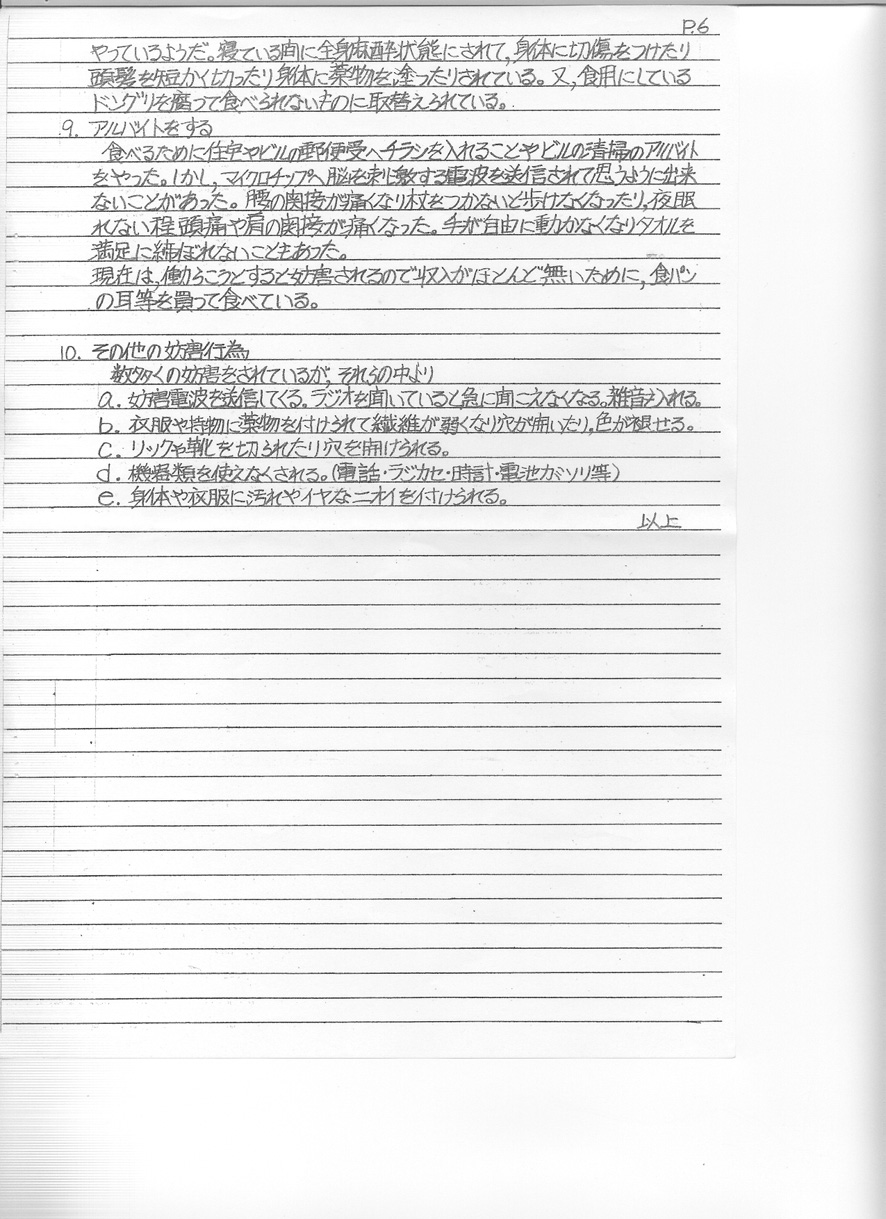 P.6
やっているようだ。寝ている間に全身麻酔状態にされて,身体に切傷をつけたり
頭髪を短かく切ったり身体に薬物を塗ったりされている。又,食用にしている
ドングリを腐って食べられないものに取替えられている。
9. アルバイトをする
食べるために住宅やビルの郵便受へチラシを入れることやビルの清掃のアルバイト
をやった。しかし,マイクロチップへ脳を刺激する電波を送信されて思うように出来
ないことがあった。腰の関接が痛くなり杖をつかないと歩けなくなったり,夜眠
れない程頭痛や肩の関接が痛くなった。手が自由に動かなくなりタオルを
満足に絞ぼれないこともあった。
現在は,働らこうとすると妨害されるので収入がほとんど無いために,食パン
の耳等を買って食べている。
10. その他の妨害行為
数多くの妨害をされているが,それらの中より
a. 妨害電波を送信してくる。ラジオを聞いていると急に聞こえなくなる。雑音を入れる。
b. 衣服や持物に薬物を付けられて繊維が弱くなり穴が開いたり,色が褪せる。
c. リックや靴を切られたり穴を開けられる。
d. 機器類を使えなくされる。(電話・ラジカセ・時計・電池カミソリ等)
e. 身体や衣服に汚れやイヤなニオイを付けられる。
以上